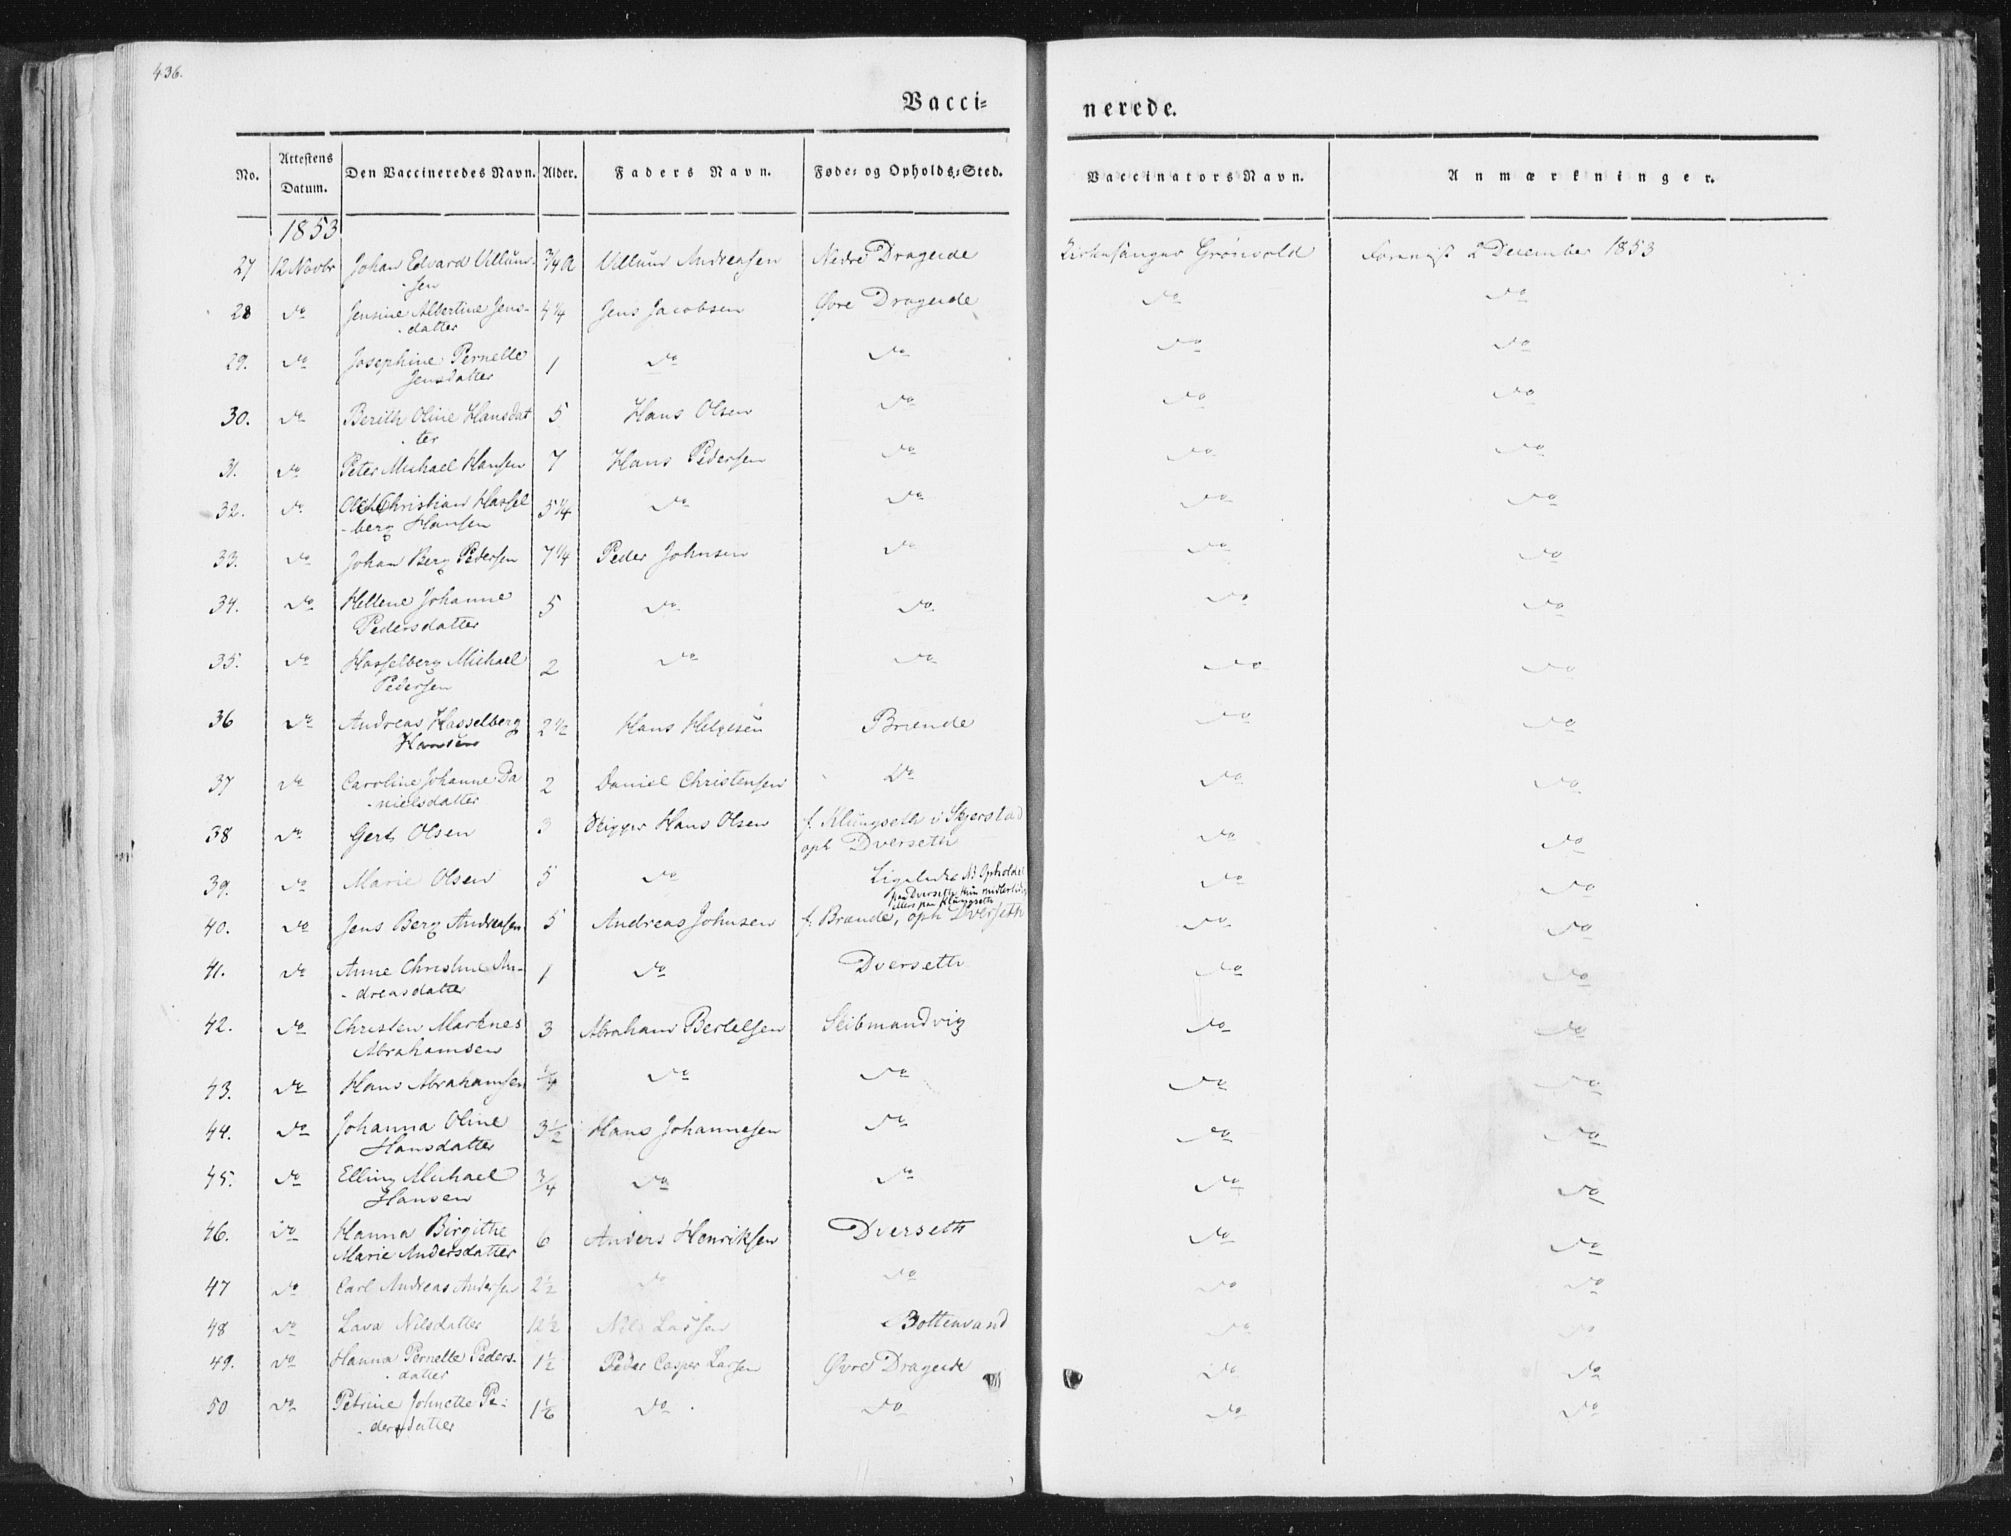 436.
Vacci= nerede.
No. Attestens Datum. Den Vaccineredes Navn. Alder. Faders Navn. Føde= og Opholds=Sted. Vaccinators Navn. Anmærkninger.
1853
27 12 Novbr Johan Edvard Villum- 3/4 A Villum Andreasen Nedre Drageide Kirkesanger Grönvold 2 December 1853
sen
28 do Jensine Albertine Jens- 4 1/4 Jens Jacobsen Øvre Drageide do do
datter
29. do Josephine Pernelle 1 do do do do
Jensdatter
30. do Berith Oline Hansdat 5 Hans Olsen do do do
ter
31. do Peter Michael Hansen 7 Hans Pedersen do do do
32. do Christian Hassel 5 1/4 do do do do
berg Hansen
33. do Johan Berg Pedersen 7 1/4 Peder Johnsen do do do
34. do Hellene Johanne 5 do do do do
Pedersdatter
35. do Hasselberg Michael 2 do do do do
Pedersen
36 do Andreas Hasselberg 2 1/2 Hans Helgesen Brænde do do
Hansen
37 do Caroline Johanne Da 2 Daniel Christensen do do do
nielsdatter
38 do Gert Olsen 3 Hans Olsen f. Klungseth i Skjerstad do do
oph Dverseth
39. do Marie Olsen 5 do Ligeledes Opholder do do
paa Dverseth
paa Klungseth
40. do Jens Berg Andreasen 5 Andreas Johnsen f. Brænde, oph Dverseth do do
41. do Anne Christine An- 1 do Dverseth do do
dreasdatter
42. do Christen Marknes 3 Abraham Bertelsen Skibmandvig do do
Abrahamsen
43. do Hans Abrahamsen 1/4 do do do do
44. do Johanna Oline 3 1/2 Hans Johannesen do do do
Hansdatter
45. do Elling Michael 3/4 do do do do
Hansen
46. do Hanna Birgithe 6 Anders Henriksen Dverseth do do
Marie Andersdatter
47 do Carl Andreas Andersen 2 1/2 do do do do
48 do Lava Nilsdatter 12 1/2 Nils Larsen Bottenvand do do
49. do Hanna Pernelle Peders- 1 1/2 Peder Casper Larsen Øvre Drageide do do
datter
50 do Petrine Johnette Pe- 1 1/6 do do do do
dersdatter